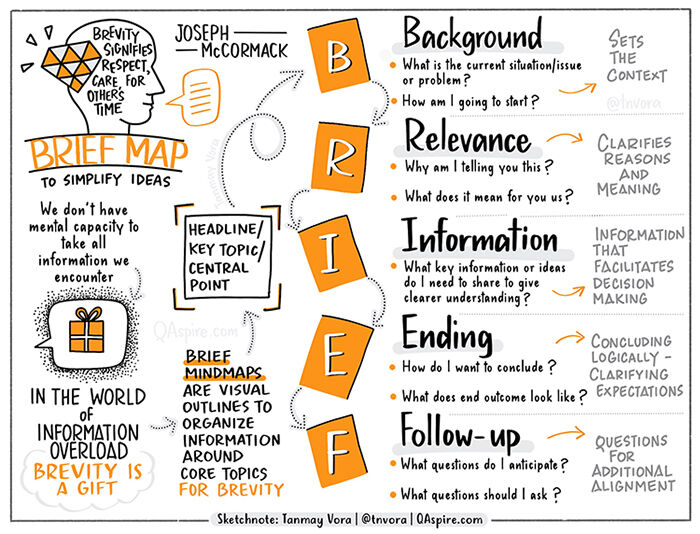 BREVITY
SIGNIFIES
RESPECT,
CARE, FOR
OTHER'S
TIME
JOSEPH
McCORMACK
BRIEF MAP
TO SIMPLIFY IDEAS
We don't have
mental capacity to
take all
information we
encounter
IN THE WORLD
of
INFORMATION
OVERLOAD
BREVITY IS
A GIFT
BRIEF
MINDMAPS
ARE VISUAL
OUTLINES TO
ORGANIZE
INFORMATION
AROUND
CORE TOPICS
FOR BREVITY
HEADLINE/
KEY TOPIC/
CENTRAL
POINT
Tanmay Vora
QAspire.com
B
R
I
E
F
Background
What is the current situation/issue
or problem?
How am I going to start?
SETS
THE
CONTEXT
@tnvora
Relevance
Why am I telling you this?
What does it mean for you us?
CLARIFIES
REASONS
AND
MEANING
Information
What key information or ideas
do I need to share to give
clearer understanding?
INFORMATION
THAT
FACILITATES
DECISION
MAKING
Ending
How do I want to conclude?
What does end outcome look like?
CONCLUDING
LOGICALLY -
CLARIFYING
EXPECTATIONS
Follow-up
What questions do I anticipate?
What questions should I ask?
QUESTIONS
FOR
ADDITIONAL
ALIGNMENT
Sketchnote: Tanmay Vora | @tnvora | QAspire.com